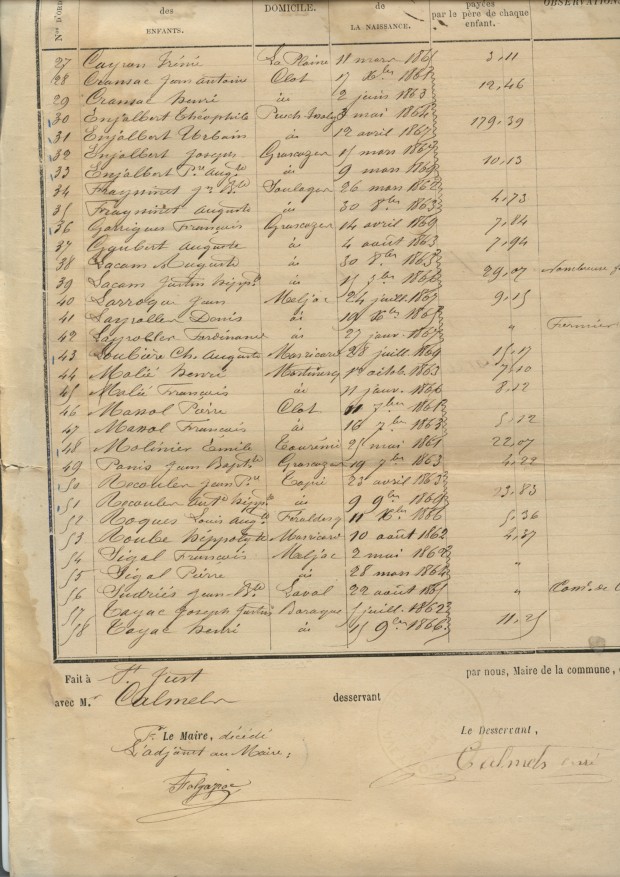 Nos D'ORD
des
ENFANTS.
DOMICILE.
de
LA NAISSANCE.
payées
par le père de chaque
enfant.
OBSERVATION
27 Cayran Irénée La Plaine 11 mars 1865 3,11
28 Cransac Jean Antoine Clot 17 Xbre 1861
29 Cransac Henri id 2 juin 1863 12,46
30 Enjalbert Théophile mai 1864
31 Enjalbert Urbain id 12 avril 1867 179,39
32 Enjalbert Joseph Grascazer 15 mars
33 Enjalbert Pre Augte id 9 mars 1869 10,13
34 Frayssinet Jn Bte Soulages 26 mars 1862
35 Frayssinet Auguste id 30 8bre 1863 4,73
36 Garrigues François Grascazer 14 avril 1869 7,84
37 Goubert Auguste id 4 août 1863 7,94
38 Lacam Auguste id 30 8bre 1863
39 Lacam Justin Hippte id 15 29,07 Nombreuse
40 Larroque Jean Meljac 24 juillt 1867 9,15
41 Layrolles Denis id 19 Xbre 1865
42 Layrolles Ferdinand id 27 janv. 1867 " Fermier
43 Loubière Chs Auguste Mazricard 28 juillt 1864 15,17
44 Malié Henri 1er octobre 1863 7,10
45 Malié François id 11 janv. 1866 8,12
46 Massol Pierre Clot 11 7bre 1861
47 Massol François id 16 7bre 1863 5,12
48 Molinier Émile 25 mai 1861 22,07
49 Panis Jean Baptte Grascazer 19 7bre 1863 4,22
50 Recoules Jean Pre Capié 23 avril 1863
51 Recoules Hippte id 9 9bre 1869 23,83
52 Roques Louis Augte 11 Xbre 1866 5,36
53 Roube Hippolyte Mazricard 10 août 1862 4,37
54 Sigal François Meljac 2 mai 1862
55 Sigal Pierre id 28 mars 1864 "
56 Sudriés Jean Bte Laval 22 août 1865 " Come de
57 Tayac Joseph Justin Baraque juillt 1862
58 Tayac Henri id 15 9bre 1866 11,25
Fait à St Just par nous, Maire de la commune,
avec M. Calmels desservant
Pr Le Maire, décédé
L'adjoint au Maire,
Le Desservant,
Calmels curé